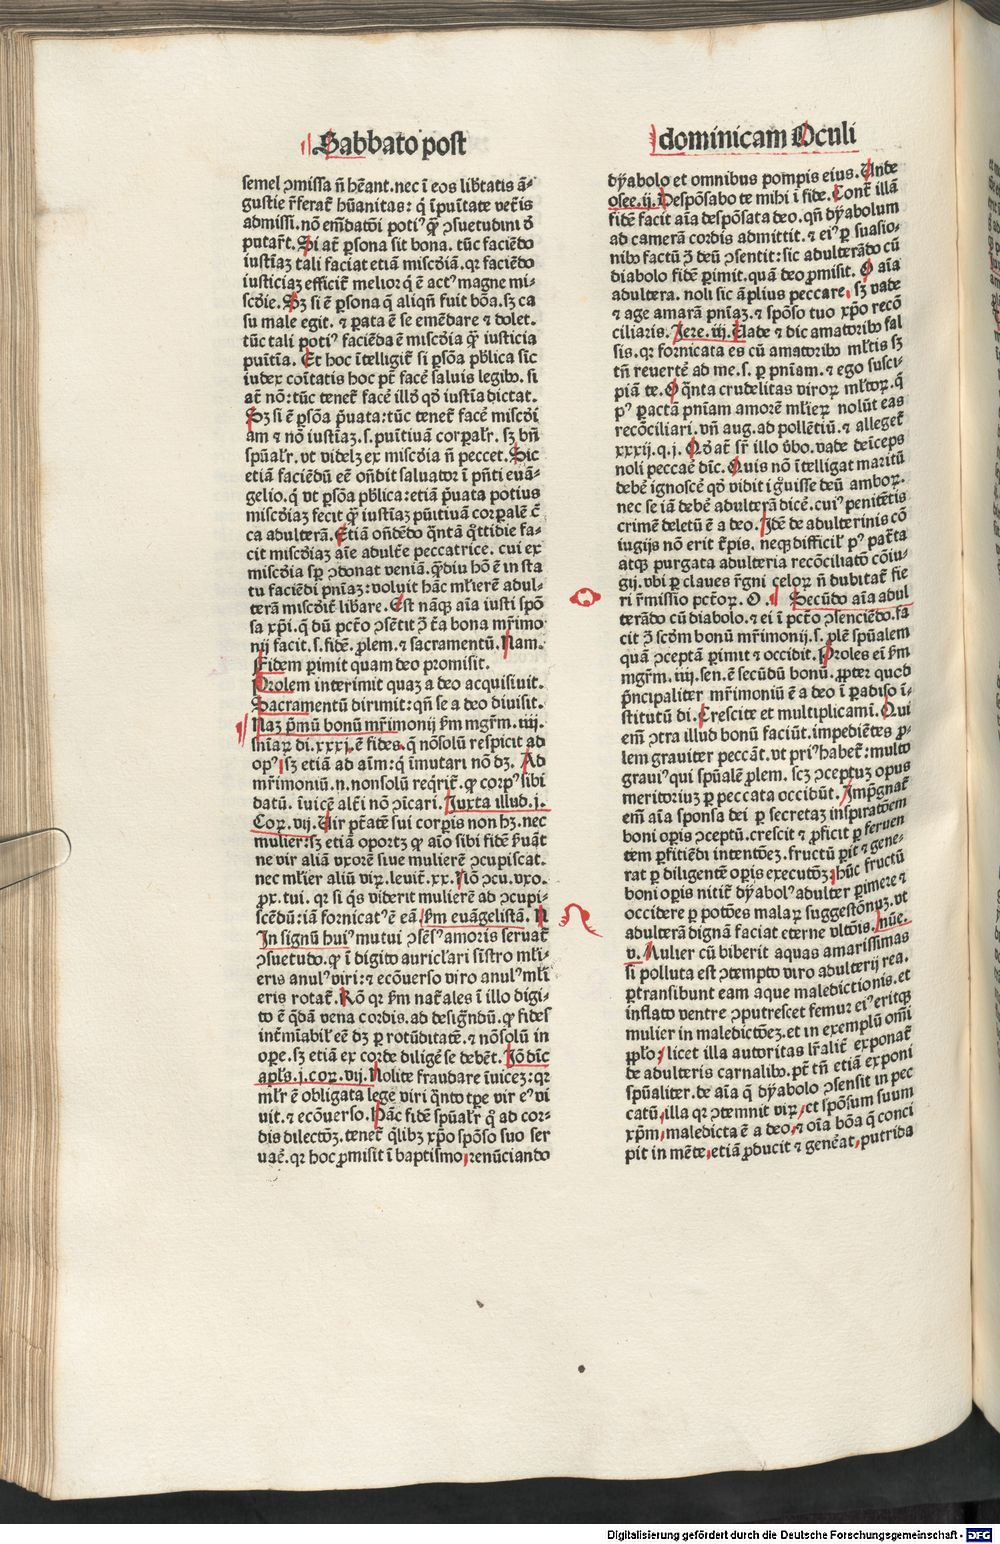 Sabbato post
semel ↄmissa n̄ hēant. nec ī eos lib̄tatis ā-
gustie r̄ferat̄ hūanitas: q̄ īpuītate vet̄is
admissi. nō em̄datōi poti⁹ q̄ꝫ ↄsuetudini d̄
putar̄t. Si at̄ ꝑsona sit bona. tūc faciēdo
iustiāꝫ tali faciat etiā miscd̄iam. qꝛ faciēdo
iusticiaꝫ efficit̄ melior q̄ ē act⁹ magne mi-
scd̄ie. Sꝫ si ē ꝑsona q̄ aliqn̄ fuit bōa. sꝫ ca
su male egit. ⁊ ꝑata ē se emēdare ⁊ dolet.
tūc tali poti⁹ faciēda ē miscd̄ia q̄ꝫ iusticia
puītia. Et hoc ītelligit̄ si ꝑsōa pb̄lica sic
iudex coītatis hoc pt̄ facē saluis legibꝰ. si
at̄ nō: tūc tenet̄ facē illd̄ qd̄ iustīa dictat.
Sꝫ si ē ꝑsōa p̄uata: tūc tenet̄ facē miscd̄i
am ⁊ nō iustiāꝫ. s. puītiuā corꝑal̄r. sꝫ bn̄
spūal̄r. vt videlꝫ ex miscd̄ia n̄ peccet. Sic
etiā faciēdū eē on̄dit saluator ī p̄n̄ti euā-
gelio. q̄ vt ꝑsōa pb̄lica: etiā p̄uata potius
miscd̄iaꝫ fecit q̄ꝫ iustiaꝫ pūitiuā corꝑalē c̄
ca adulterā. Etiā on̄dēdo q̄ntā q̄ttidie fa-
cit miscd̄iaꝫ aīe adult̄e peccatrice. cui ex
miscd̄ia sꝑ ↄdonat veniā. q̄ꝫdiu hō ē in sta
tu faciēdi pn̄iaꝫ: voluit hāc ml̄ierē adul-
terā miscd̄it̄ lib̄are. Est nāqꝫ aīa iusti spō
sa xp̄i. q̄ dū pct̄o ↄsētit ꝯ t̄a bona mr̄imo
nij facit. s. fidē. ꝓlem. ⁊ sacramentū. Nam.
Fidem ꝑimit quam deo promisit.
Prolem interimit quaꝫ a deo acquisiuit.
Sacramentū dirimit: qn̄ se a deo diuisit.
Naꝫ p̄mū bonū mr̄imonij ẜm mgr̄m. iiij.
sn̄iaꝝ di. xxxj. ē fides. q̄ nōsolū respicit ad
op⁹. sꝫ etiā ad aīm: q̄ īmutari nō dꝫ. Ad
mr̄imoniū .n. nonsolū reqrit̄. ꝙ corp⁹ sibi
datū. īuicē alt̄i nō ↄicari. Juxta illud. j.
Coꝝ. vij. Uir pt̄atē sui corꝑis non hꝫ. nec
mulier: sꝫ etiā oportꝫ ꝙ aīo sibi fidē ẜuāt
ne vir aliā vxorē siue mulierē ↄcupiscat.
nec ml̄ier aliū viꝝ. leuit̄. xx. Nō ↄcu. vxo.
ꝓx. tui. qꝛ si q̄s viderit mulierē ad ↄcupi-
scēdū: iā fornicat⁹ ē eā. ẜm euāgelistā. N
In signū hui⁹ mutui ↄsēs⁹ amoris seruat̄
ↄsuetudo. ꝙ ī digito auriclari sistro ml̄i-
eris anul⁹ viri: ⁊ ecōuerso viro anul⁹ ml̄i
eris rotat̄. Rō qꝛ ẜm nat̄ales ī illo digi-
to ē q̄dā vena cordis. ad desigr̄dū. ꝙ fides
int̄mīabil̄ eē dꝫ ꝑ rotūditatē. ⁊ nōsolū in
oꝑe. sꝫ etiā ex corde diligē se debēt. Jō dīc
apl̄s. j. coꝝ. vij. Nolite fraudare īuiceꝫ: qꝛ
ml̄r ē obligata lege viri q̄nto tꝑe vir e⁹ vi
uit. ⁊ ecōuerso. Hāc fidē spūal̄r q̄ ad cor-
dis dilectōꝫ. tenet̄ q̄libꝫ xp̄o spōso suo ser
uaē. qꝛ hoc ꝓmisit ī baptismo, renūciando
dominicam Oculi
dyabolo et omnibus pompis eius. Unde
osee. ij. Desponsabo te mihi ī fide. Cont̄ illā
fidē facit aīa despōsata deo. qn̄ dyabolum
ad camerā cordis admittit. ⁊ ei⁹ ꝑ suasio-
nibꝰ factū ꝯ deū ↄsentit: sic adulterādo cū
diabolo fidē ꝑimit. quā deo ꝓmisit. O aīa
adultera. noli sic āplius peccare, sꝫ vade
⁊ age amarā pn̄iaꝫ. ⁊ spōso tuo xp̄o recō
ciliaris. Jere. iij. Uade ⁊ dic amatoribꝰ fal
sis. qꝛ fornicata es cū amatoribꝰ ml̄tis sꝫ
tn̄ reuertē ad me. s. ꝑ pn̄iam. ⁊ ego susci-
piā te. O q̄nta crudelitas viroꝝ ml̄toꝝ. q̄
p⁹ ꝑactā pn̄iam amorē ml̄ieꝝ nolūt eas
recōciliari. vn̄ aug. ad pollētiū. ⁊ alleget̄
xxxij. q. j. Qd̄ at̄ sr̄ illo v̄bo. vade deīceps
noli peccaē dīc. Quis nō ītelligat maritū
debē ignoscē qd̄ vidit iḡuisse deū amboꝝ.
nec se iā debē adulterā dicē. cui⁹ penitētis
crimē deletū ē a deo. Idē de adulterinis cō
iugijs nō erit t̄pis. neqꝫ difficil̄ p⁹ pat̄ta
atqꝫ purgata adulteria recōciliatō cōiu-
gij. vbi ꝑ claues r̄gni celoꝝ n̄ dubitat̄ fie
ri r̄missio pct̄oꝝ. O. ¶ Secūdo aīa adul
terādo cū diabolo. ⁊ ei ī pct̄o ↄsenciēdo. fa
cit ꝯ scd̄m bonū mr̄imonij. s. ꝓlē spūalem
quā ↄceptā ꝑimit ⁊ occidit. Proles ei ẜm
mgr̄m. iiij. sen. ē secūdū bonū. ꝓpter quod
p̄ncipaliter mr̄imoniū ē a deo ī ꝑadiso ī-
stitutū di. Crescite et multiplicamī. Qui
em̄ ↄtra illud bonū faciūt. impediētes ꝓ-
lem grauiter peccāt. vt pri⁹ habet̄: multo
graui⁹ qui spūalē ꝓlem. scꝫ ↄceptuꝫ opus
meritoriuꝫ ꝑ peccata occidūt. Imp̄gnat̄
em̄ aīa sponsa dei ꝑ secretaꝫ inspiratōem
boni oꝑis ↄceptū. crescit ⁊ ꝓficit ꝑ feruen
tem ꝑfitiēdi intentōeꝫ. fructū ꝑit ⁊ gene-
rat ꝑ diligentē oꝑis executōꝫ: hūc fructū
boni oꝑis nitit̄ dyabol⁹ adulter ꝑimere ⁊
occidere ꝑ potōes malaꝝ suggestōnuꝫ. vt
adulterā dignā faciat eterne vltōis. nūe.
v. Mulier cū biberit aquas amarissimas
si polluta est ↄtempto viro adulterij rea.
ꝑtransibunt eam aque maledictionis. et
inflato ventre ↄputrescet femur ei⁹ eritqꝫ
mulier in maledictōeꝫ. et in exemplū om̄i
ꝓplo: licet illa autoritas lr̄alit̄ exponat̄
de adulteris carnalibꝰ. pt̄ tn̄ etiā exponi
spūaliter. de aīa q̄ dyabolo ↄsensit in pec
catū, illa qꝛ ↄtemnit viꝝ, et spōsum suum
xp̄m, maledicta ē a deo, ⁊ oīa bōa q̄ conci
pit in mēte, etiā ꝓducit ⁊ genēat, putrida
Digitalisierung gefördert durch die Deutsche Forschungsgemeinschaft - DFG